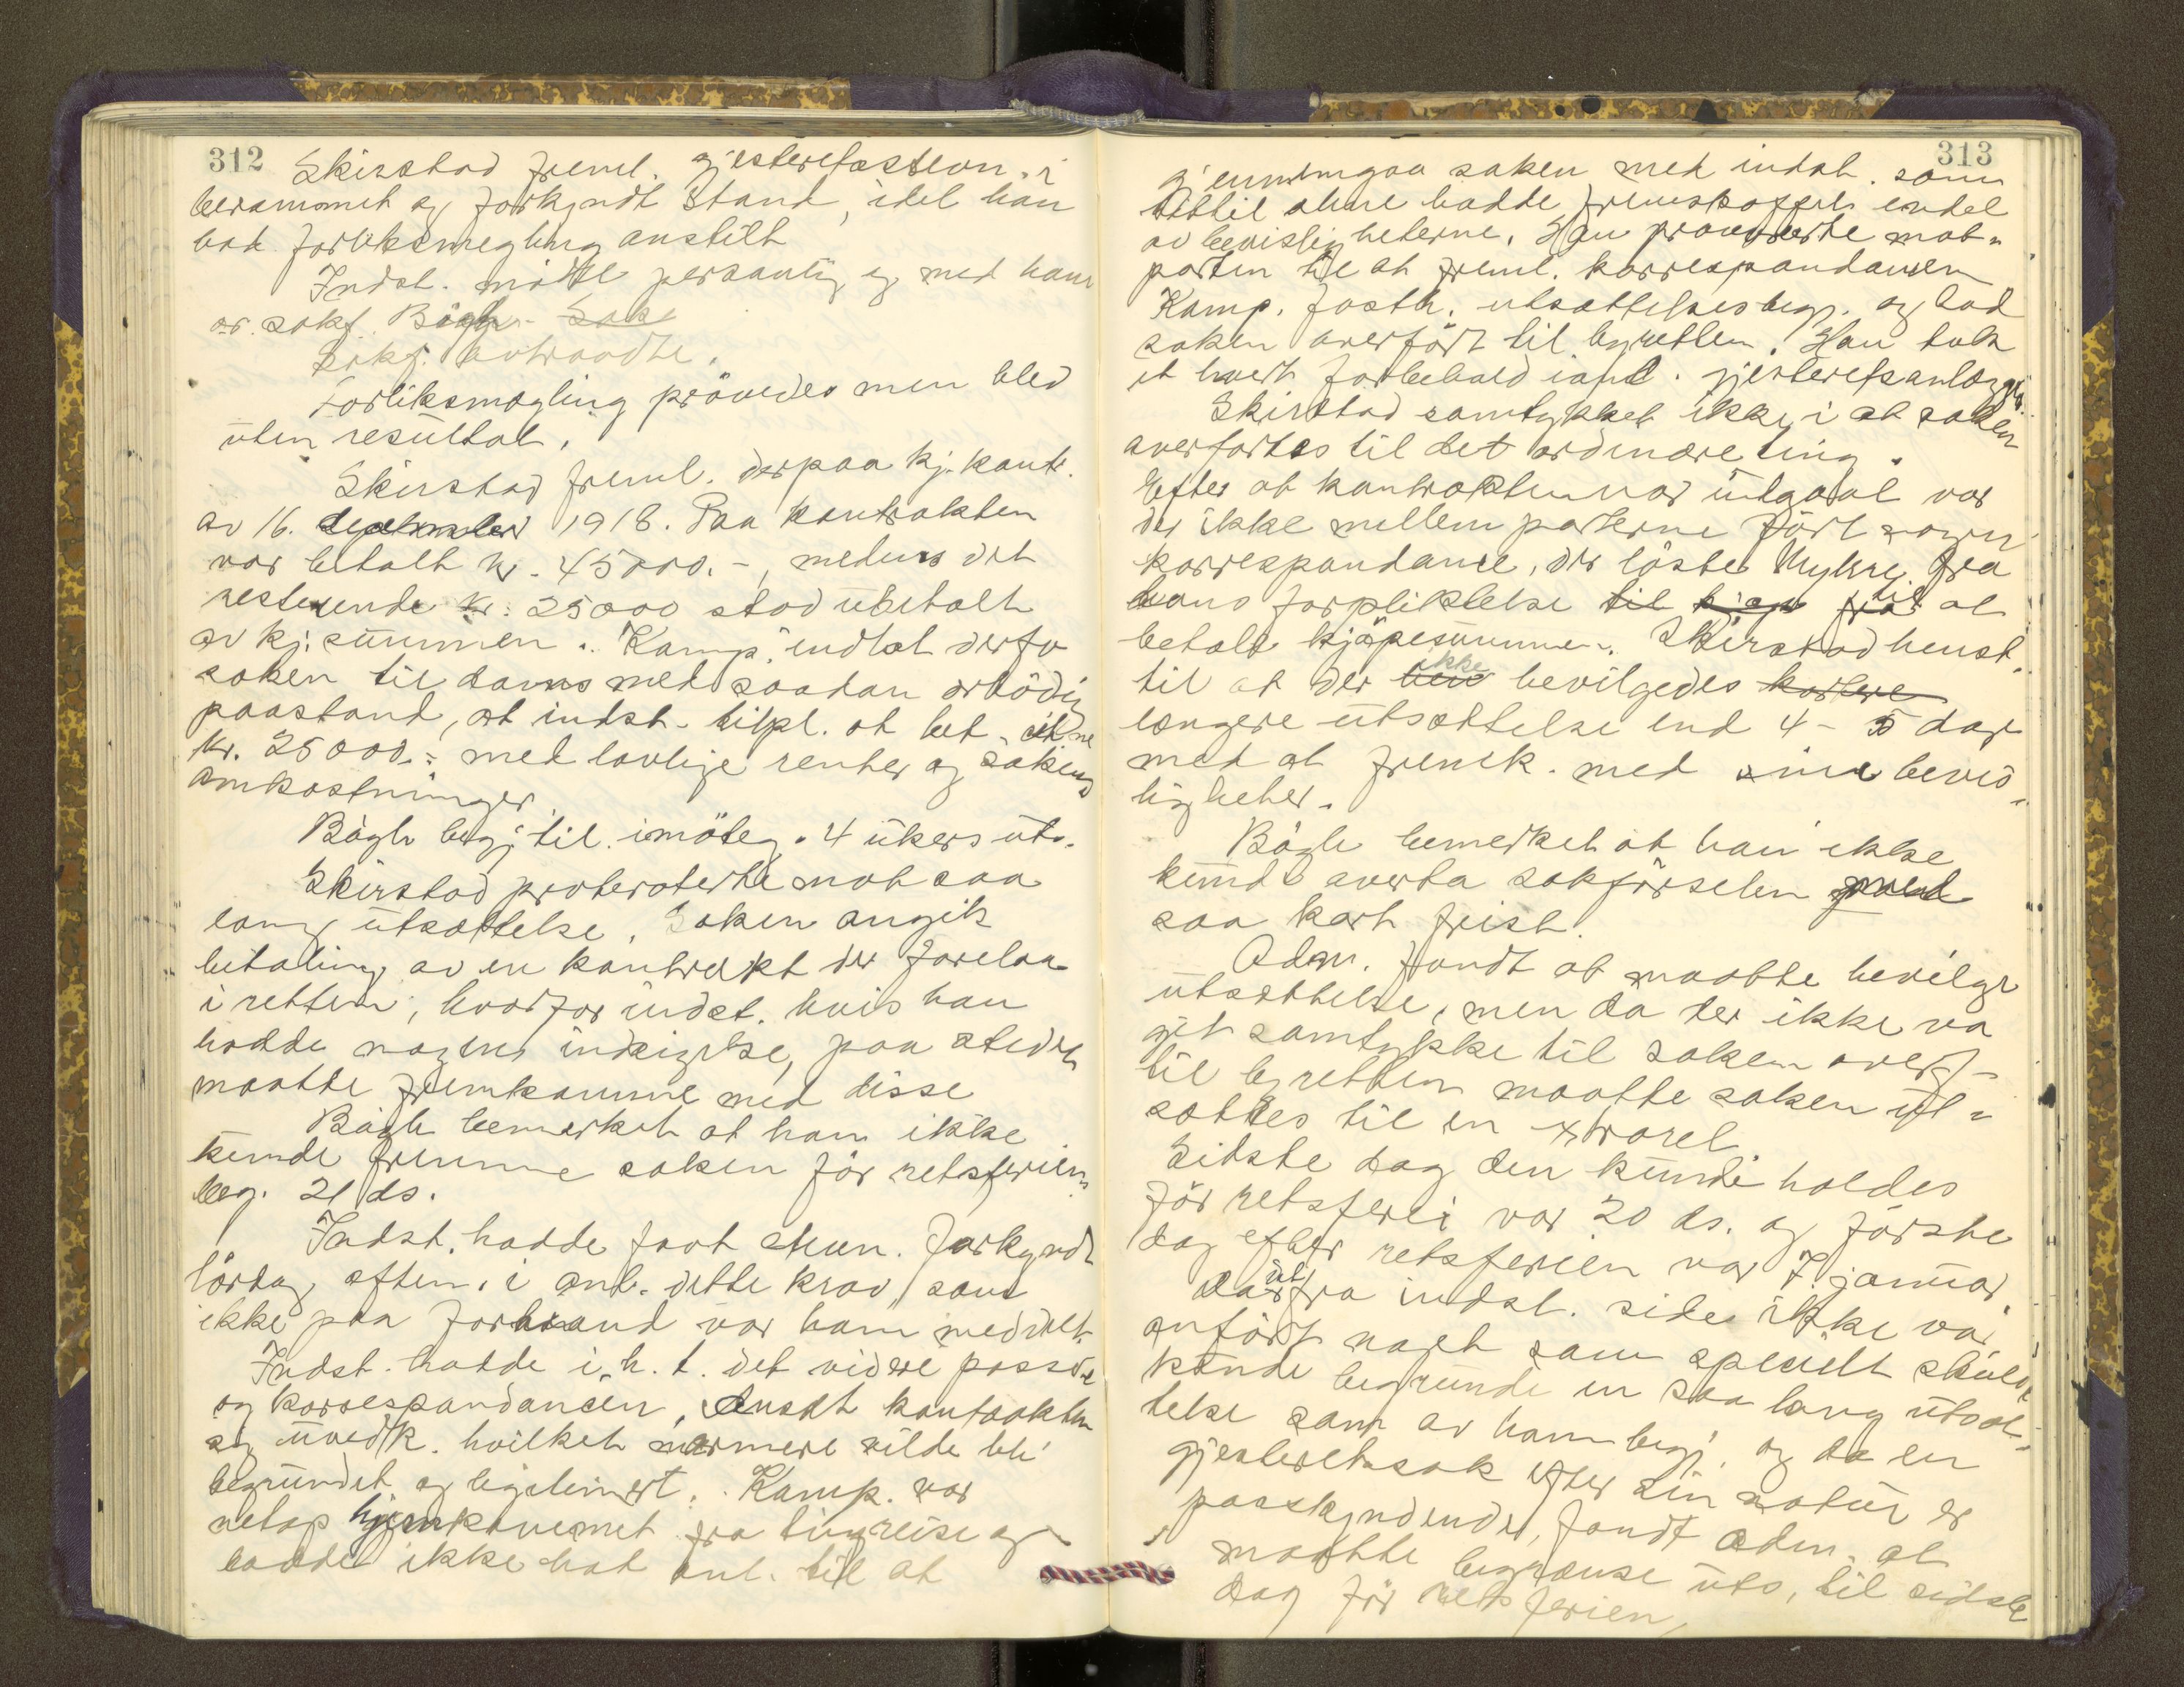 312
Skirstad freml. gjesteretsstevn. i
berammet og forkyndt stand, idet han
bad forliksmegling anstilt
Indst. mötte personlig og med ham
or. sakf. Bögh. Sake
Sakf. avtraadte.
Forliksmægling prövedes men bled
uten resultat.
Skirstad freml. derpaa kj. kontr.
av 16. september 1918. Paa kontrakten
var betalt kr. 45000.-, medens det
resterende kr. 25000 stod ubetalt
av kj. summen. Komp. indlot derfo
saken til doms med saadan ærbödig
paastand, at indst. tilpl. at bet.
kr. 25000.- med lovlige renter og sakens
omkostninger.
Bögh begj. til imöteg. 4 ukers uts.
Skirstad protesterte mot saa
lang utsættelse. Saken angik
betaling av en kontrakt der forelaa
i retten, hvorfor indst. hvis han
hadde nogen indsigelse, paa stedet
maatte fremkomme med disse
Bögh bemerket at han ikke
kunde fremme saken för retsferien
beg. 21 ds.
Indst. hadde faat stevn. forkyndt
lördag aften i anl. dette krav som
ikke paa forhaand var ham meddelt.
Indst. hadde i. h. t. det videre passe
og korrespondancen, ansat kontrakten
og uvedk. hvilket nærmere vilde bli
begrundet og legitimert. Komp. var
netop hjemkommet fra tingreise og
hadde ikke hat anl. til at
313
gjennemgaa saken med indst. som
hittil alene hadde fremskaffet endel
av bevisligheterne. Han provoserte mot-
parten til at freml. korrespondancen
Komp. fasth. utsættelsesbegj. og bad
saken overfört til byretten. Han tok
et hvert forbehold ianl. gjesteretsanlægget.
Skirstad samtykket ikke i at saken
overförtes til det ordinære ting.
Efter at kontrakten var indgaat var
der ikke mellem parterne fört nogen
korrespondance, der löste Myhre fra
hans forpliktelse til kjøp fra til at
betale kjöpesummen. Skirstad henst.
til at der ikke bevilgedes kortere
længere utsættelse end 4 - 5 dag
med at fremk. med sine bevis
ligheter.
Bögh bemerket at han ikke
kunde overta sakförselen med
saa kort frist.
Adm. fandt at maatte bevilge
utsættelse, men da der ikke va
git samtykke til saken overf-
til byretten maatte saken ut-
sættes til en xtraret
Sidste dag den kunde holdes
för retsferie var 20 ds. og förste
dag efter retsferien var 7. januar.
Da der fra indst. side ikke var
anfört noget som specielt skulde
kunde begrunde en saa lang utsæt-
telse som av ham begj. og da en
gjesteretssak efter sin natur er
paaskyndende, fandt adm. at
maatte begrænse uts. til sidste
dag för retsferien,